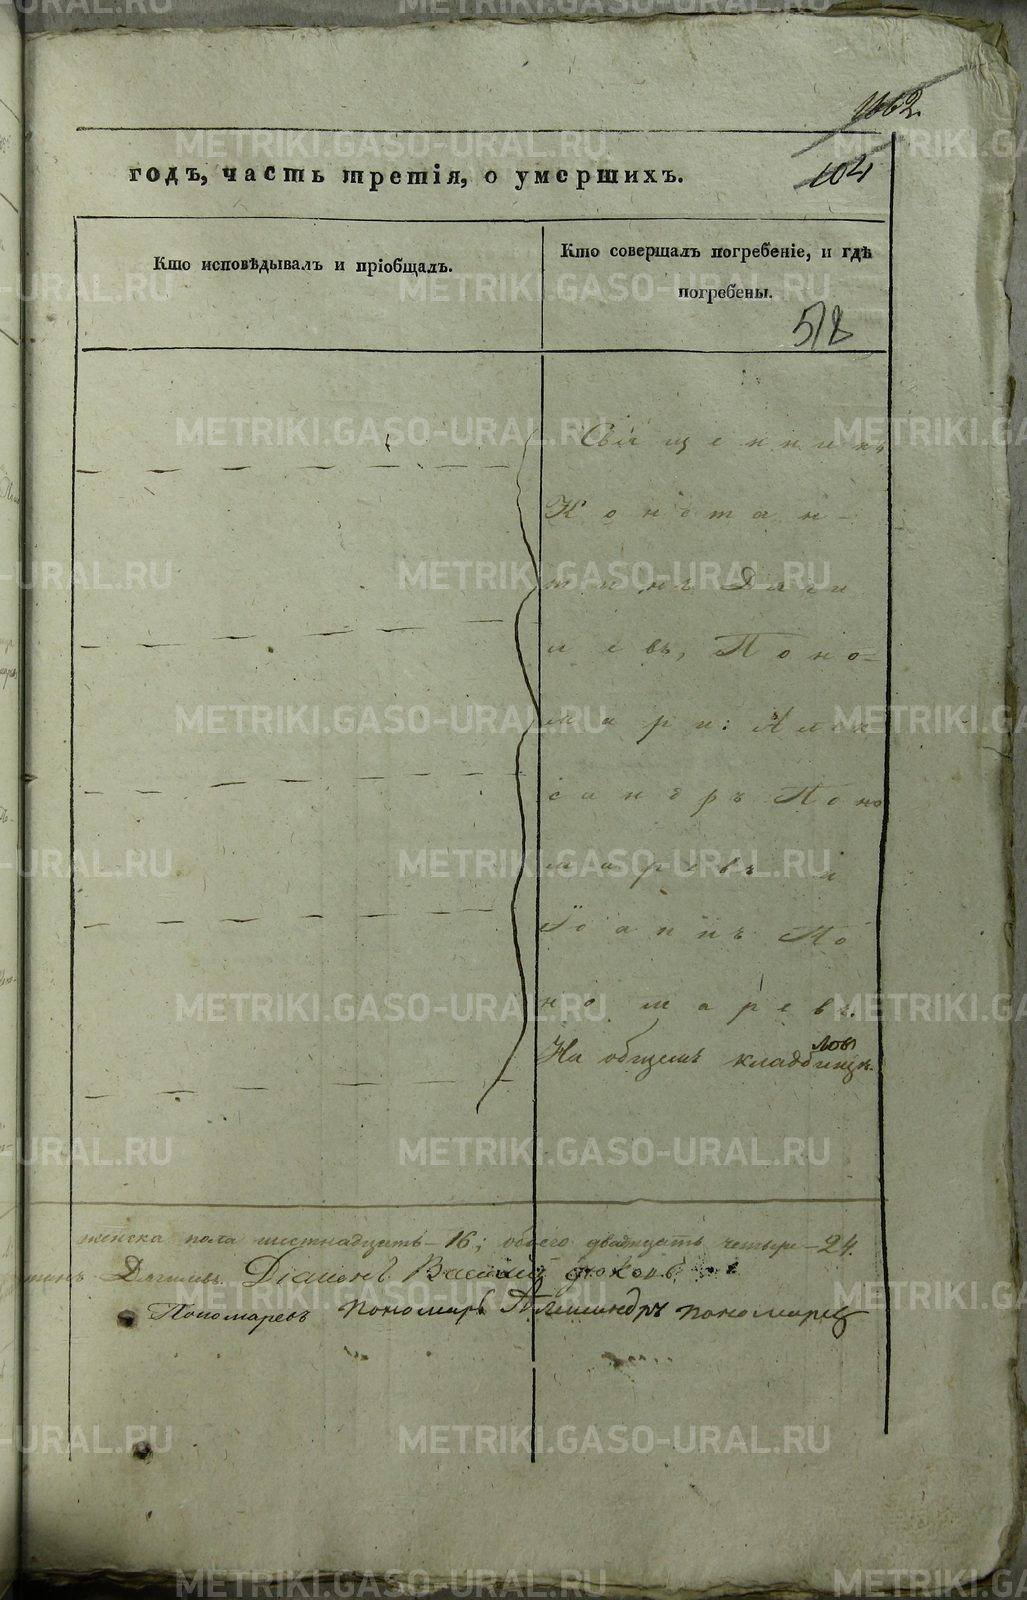 1062
104
годъ, часть третія, о умершихъ.
Кто исповѣдывалъ и пріобщалъ.
Кто совершалъ погребеніе, и гдѣ
погребены.
518
Священникъ
Констан-
тинъ Дяги
левъ, Поно-
мари: Алек
сандръ Поно
маревъ и
Іоаннъ По
номаревъ.
На общемъ кладбищѣ.
женска пола шестнадцать - 16; обоего двадцать четыре - 24.
тинъ Дягилевъ. Діаконъ Василій
Пономаревъ пономарь Александръ пономаревъ
METRIKI.GASO-URAL.RU